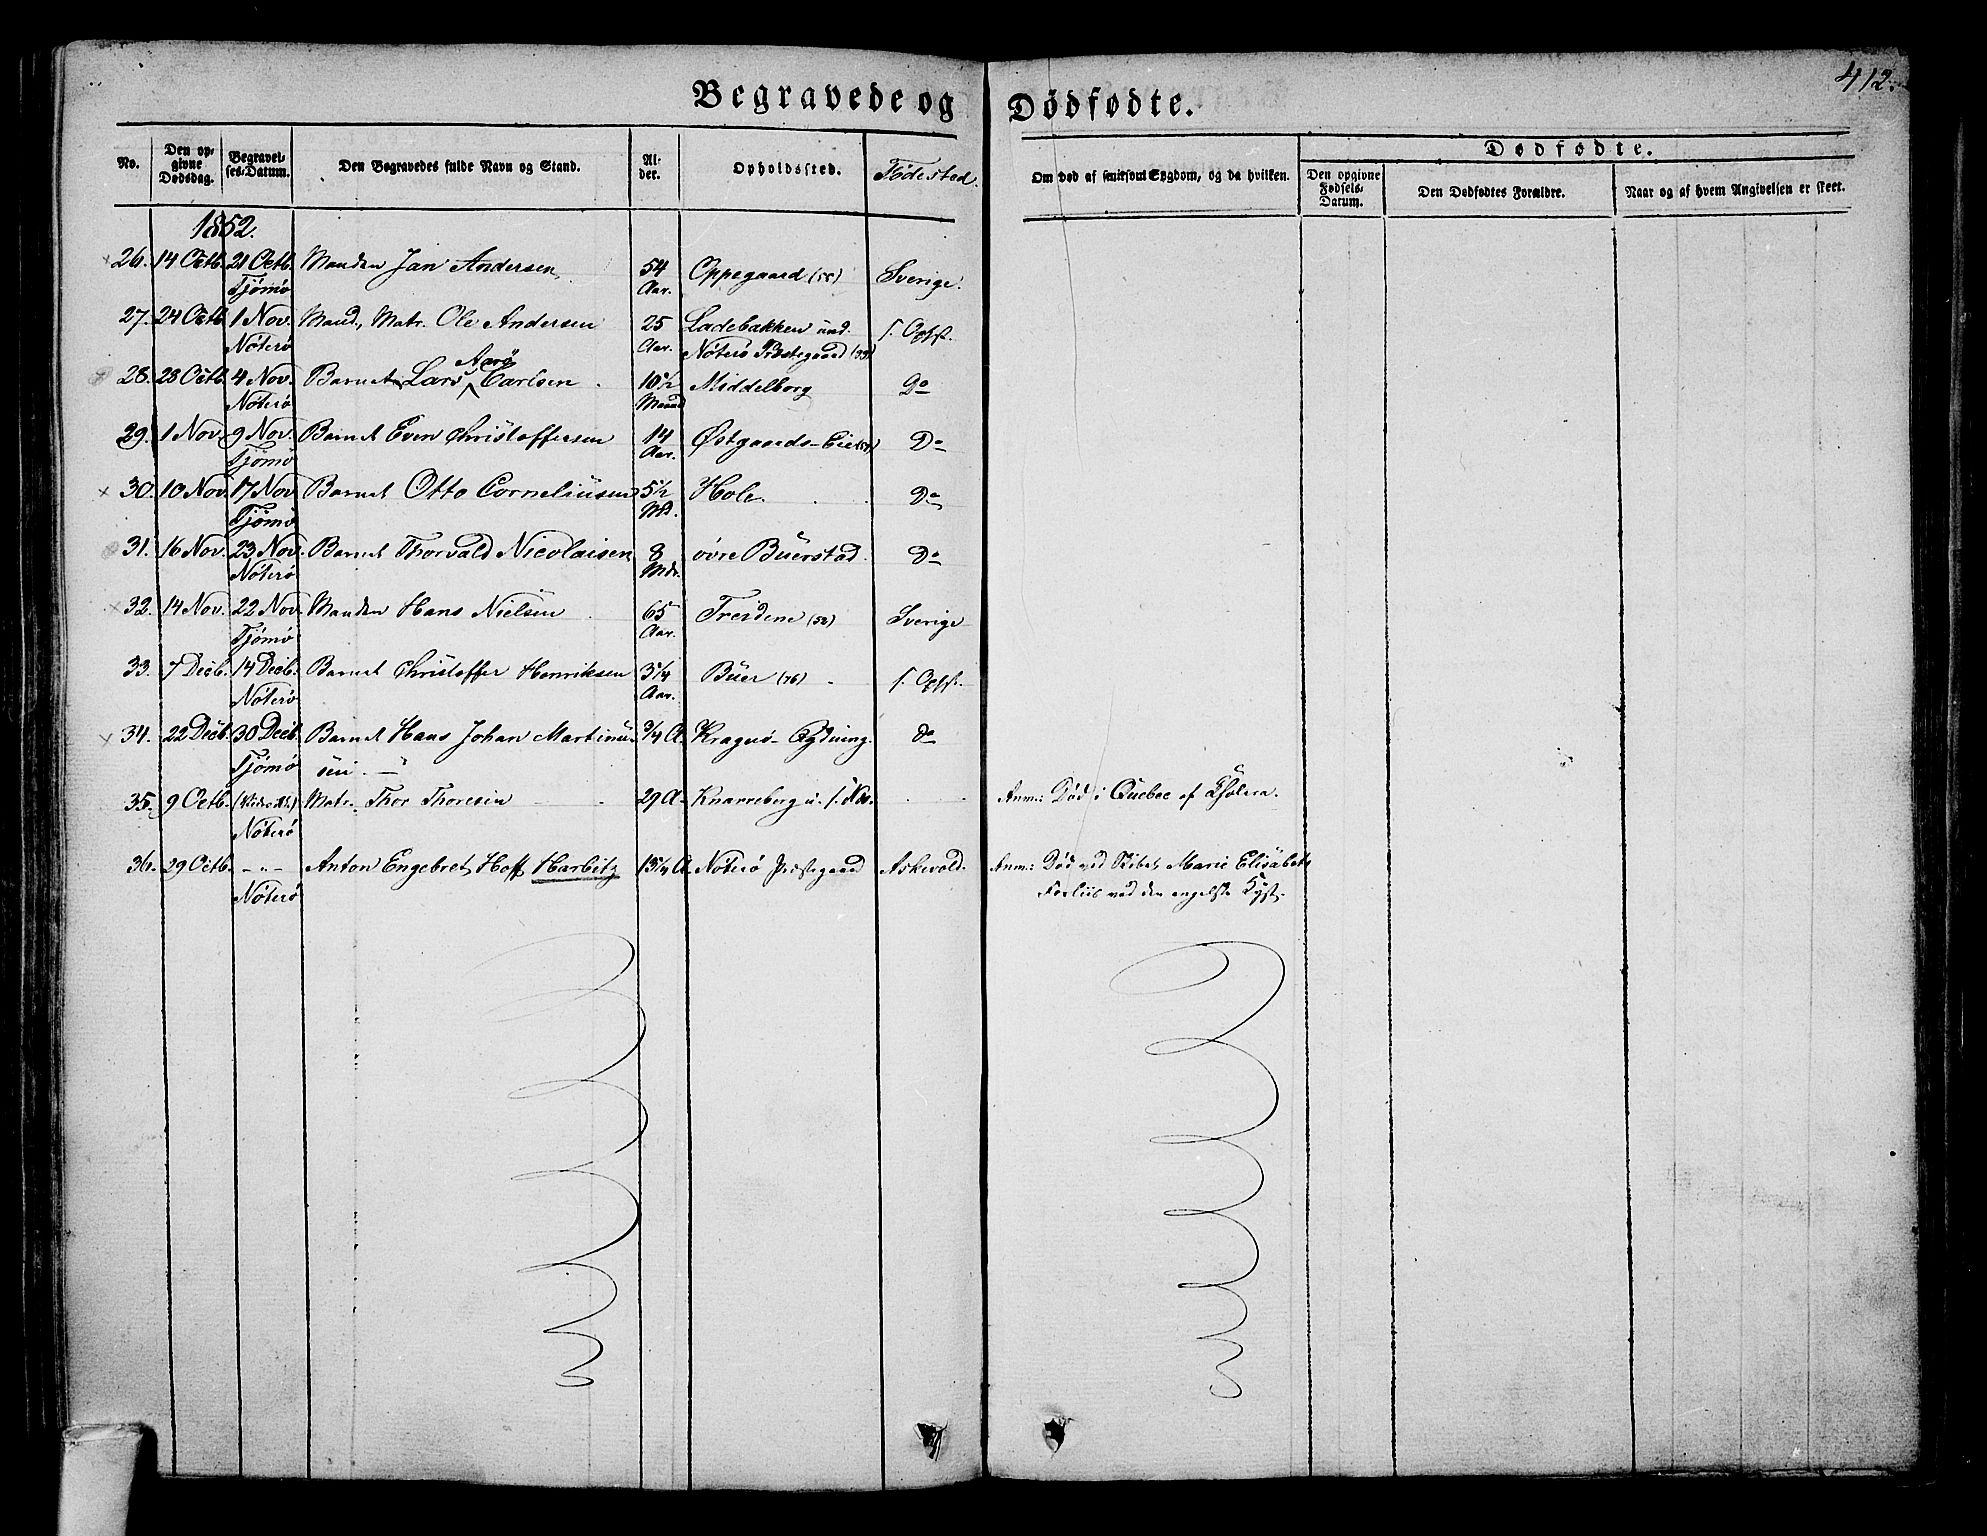 412.
Begravede og Dødfødte.
No. | Den opgivne Dødsdag. | Begravelses-Datum. | Den Begravedes fulde Navn og Stand. | Alder. | Opholdssted. | Fødested. | Om død af smitsom Sygdom, og da hvilken. | Dødfødte.
Den opgivne Fødsels-Datum. | Den Dødfødtes Forældre. | Naar og af hvem Angivelsen er skeet.
1852.
26. 14 Octb. 21 Octb. Manden Jan Andersen 54 Oppegaard (55) Sverige.
Tjømø Aar.
27. 24 Octb. 1 Nov. Mand, Matr. Ole Andersen 25 Ladebakken und. f. Opfst.
Nøterø Aar. Nøterø Præstegaard
28. 28 Octb. 4 Nov. Barnet Lars Aarø Carlsen 10 1/2 Middelborg Do
Nøterø Maand
29. 1 Nov. 9 Nov. Barnet Even Christoffersen 14 Østgaards-Eie Do
Tjømø Aar.
30. 10 Nov. 17 Nov. Barnet Otto Corneliusen 5 1/2 Hole. Do
Tjømø Md.
31. 16 Nov. 23 Nov. Barnet Thorvald Nicolaisen 8 øvre Buerstad. Do
Nøterø Mdr.
32. 14 Nov. 22 Nov. Manden Hans Nielsen 65 Treidene (52) Sverige
Tjømø Aar.
33. 7 Decb. 14 Decb. Barnet Christoffer Henriksen 3 1/4 Buer (76) f. Opfst.
Nøterø Aar.
34. 22 Decb. 30 Decb. Barnet Hans Johan Martinu- 3/4 A. Kragnø-Rydning. do
Tjømø sen.
35. 9 Octb. Matr. Thor Thoresen 29 A. Knarreberg Anm.: Død i Quebec af Cholera.
Nøterø
36. 29 Octb. - " - Anton Engebret Hoff Harbitz 13 3/4 A. Nøterø Præstegaard Askevold. Anm.: Død ved Skibet Marie Elisabeths
Nøterø Forliis ved den engelske Kyst.